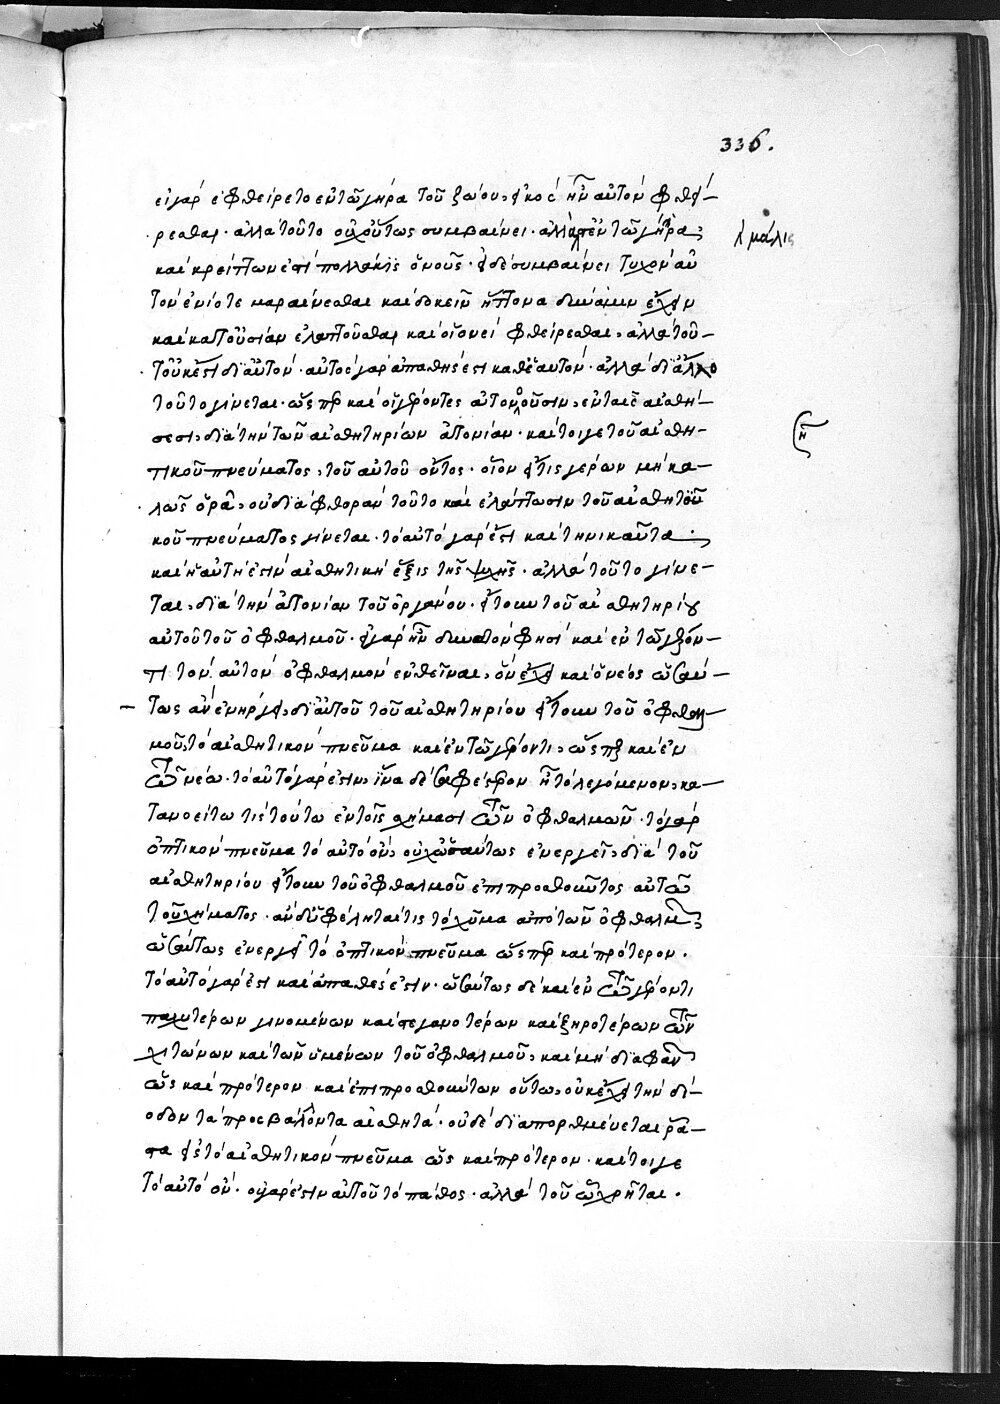 336.
εἰ γὰρ ἐφθείρετο ἐν τῶ γήρα τοῦ ζώου, εἰκὸς ἦν αὐτὸν φθεί-
ρεσθαι. ἀλλὰ τοῦτο οὐχ οὕτως συμβαίνει. ἀλλὰ ἐν τῶ γήρα,
μάλις
καὶ κρείττων ἐστὶ πολλάκις ὁ νοῦς. εἰ δὲ συμβαίνει τυχὸν αὐ
τὸν ἐνίοτε μαραίνεσθαι καὶ δοκεῖν ἥττονα δύναμιν ἔχειν
καὶ κατ' οὐσίαν ἐλαττοῦσθαι καὶ οἱονεὶ φθείρεσθαι, ἀλλὰ τοῦ-
το οὐκ ἔστι δι' αὐτόν. αὐτὸς γὰρ ἀπαθής ἐστι καθ' ἑαυτόν. ἀλλὰ δι' ἄλλο
τοῦτο γίνεται. ὥσπερ καὶ οἱ γέροντες ἀτονοῦσιν, ἐν ταῖς αἰσθή-
σεσι, διὰ τὴν τῶν αἰσθητηρίων ἀτονίαν. καίτοιγε τοῦ αἰσθη-
ἢ
τικοῦ πνεύματος, τοῦ αὐτοῦ ὄντος. οἷον εἴ τις γέρων μὴ κα-
λῶς ὁρᾶ, οὐ διὰ φθορὰν τοῦτο καὶ ἐλάττωσιν τοῦ αἰσθητι
κοῦ πνεύματος γίνεται. τὸ αὐτὸ γάρ ἐστι καὶ τηνικαῦτα.
καὶ ἡ αὐτή ἐστιν αἰσθητικὴ ἕξις τῆς ψυχῆς. ἀλλὰ τοῦτο γίνε-
ται, διὰ τὴν ἀτονίαν τοῦ ὀργάνου. ἤτοι τοῦ αἰσθητηρίου
αὐτοῦ τοῦ ὀφθαλμοῦ. εἰ γὰρ ἦν δυνατόν φησι καὶ ἐν τῶ γέρον-
τι τὸν αὐτὸν ὀφθαλμὸν ἐνθεῖναι, ὃν ἔχει καὶ ὁ νέος ὡσαύ-
τως ἂν ἐνήργει, δι' αὐτοῦ τοῦ αἰσθητηρίου ἤτοι τοῦ ὀφθαλ-
μοῦ, τὸ αἰσθητικὸν πνεῦμα καὶ ἐν τῶ γέροντι, ὥσπερ καὶ ἐν
τῶ νέω. τὸ αὐτὸ γάρ ἐστιν, ἵνα δὲ σαφέστερον ᾖ τὸ λεγόμενον, κα-
τανοείτω τις τοῦτο ἐν τοῖς χύμασι τῶν ὀφθαλμῶν. τὸ γὰρ
ὀπτικὸν πνεῦμα τὸ αὐτὸ ὂν, οὐχ ὡσαύτως ἐνεργεῖ, διὰ τοῦ
αἰσθητηρίου ἤτοι τοῦ ὀφθαλμοῦ ἐπιπροσθοῦντος αὐτῶ
τοῦ χύματος. ἂν δ' ὑφέληταί τις τὸ χύμα ἀπὸ τῶν ὀφθαλμῶν,
ὡσαύτως ἐνεργεῖ τὸ ὀπτικὸν πνεῦμα ὥσπερ καὶ πρότερον.
τὸ αὐτὸ γάρ ἐστι καὶ ἀπαθές ἐστιν. ὡσαύτως δὲ καὶ ἐν τῶ γέροντι
παχυτέρων γινομένων καὶ στεγανοτέρων καὶ ξηροτέρων τῶν
χιτώνων καὶ τῶν ὑμένων τοῦ ὀφθαλμοῦ, καὶ μὴ διαφανῶν
ὡς καὶ πρότερον καὶ ἐπιπροσθούντων οὕτω, οὐκ ἔχει τὴν δί-
οδον τὰ προσβάλλοντα αἰσθητά. οὐδὲ διαπορθμεύεται ῥᾶ-
στα εἰς τὸ αἰσθητικὸν πνεῦμα ὡς καὶ πρότερον. καίτοιγε
τὸ αὐτὸ ὄν. οὐ γάρ ἐστιν αὐτοῦ τὸ πάθος. ἀλλὰ τοῦ ὧ χρῆται.